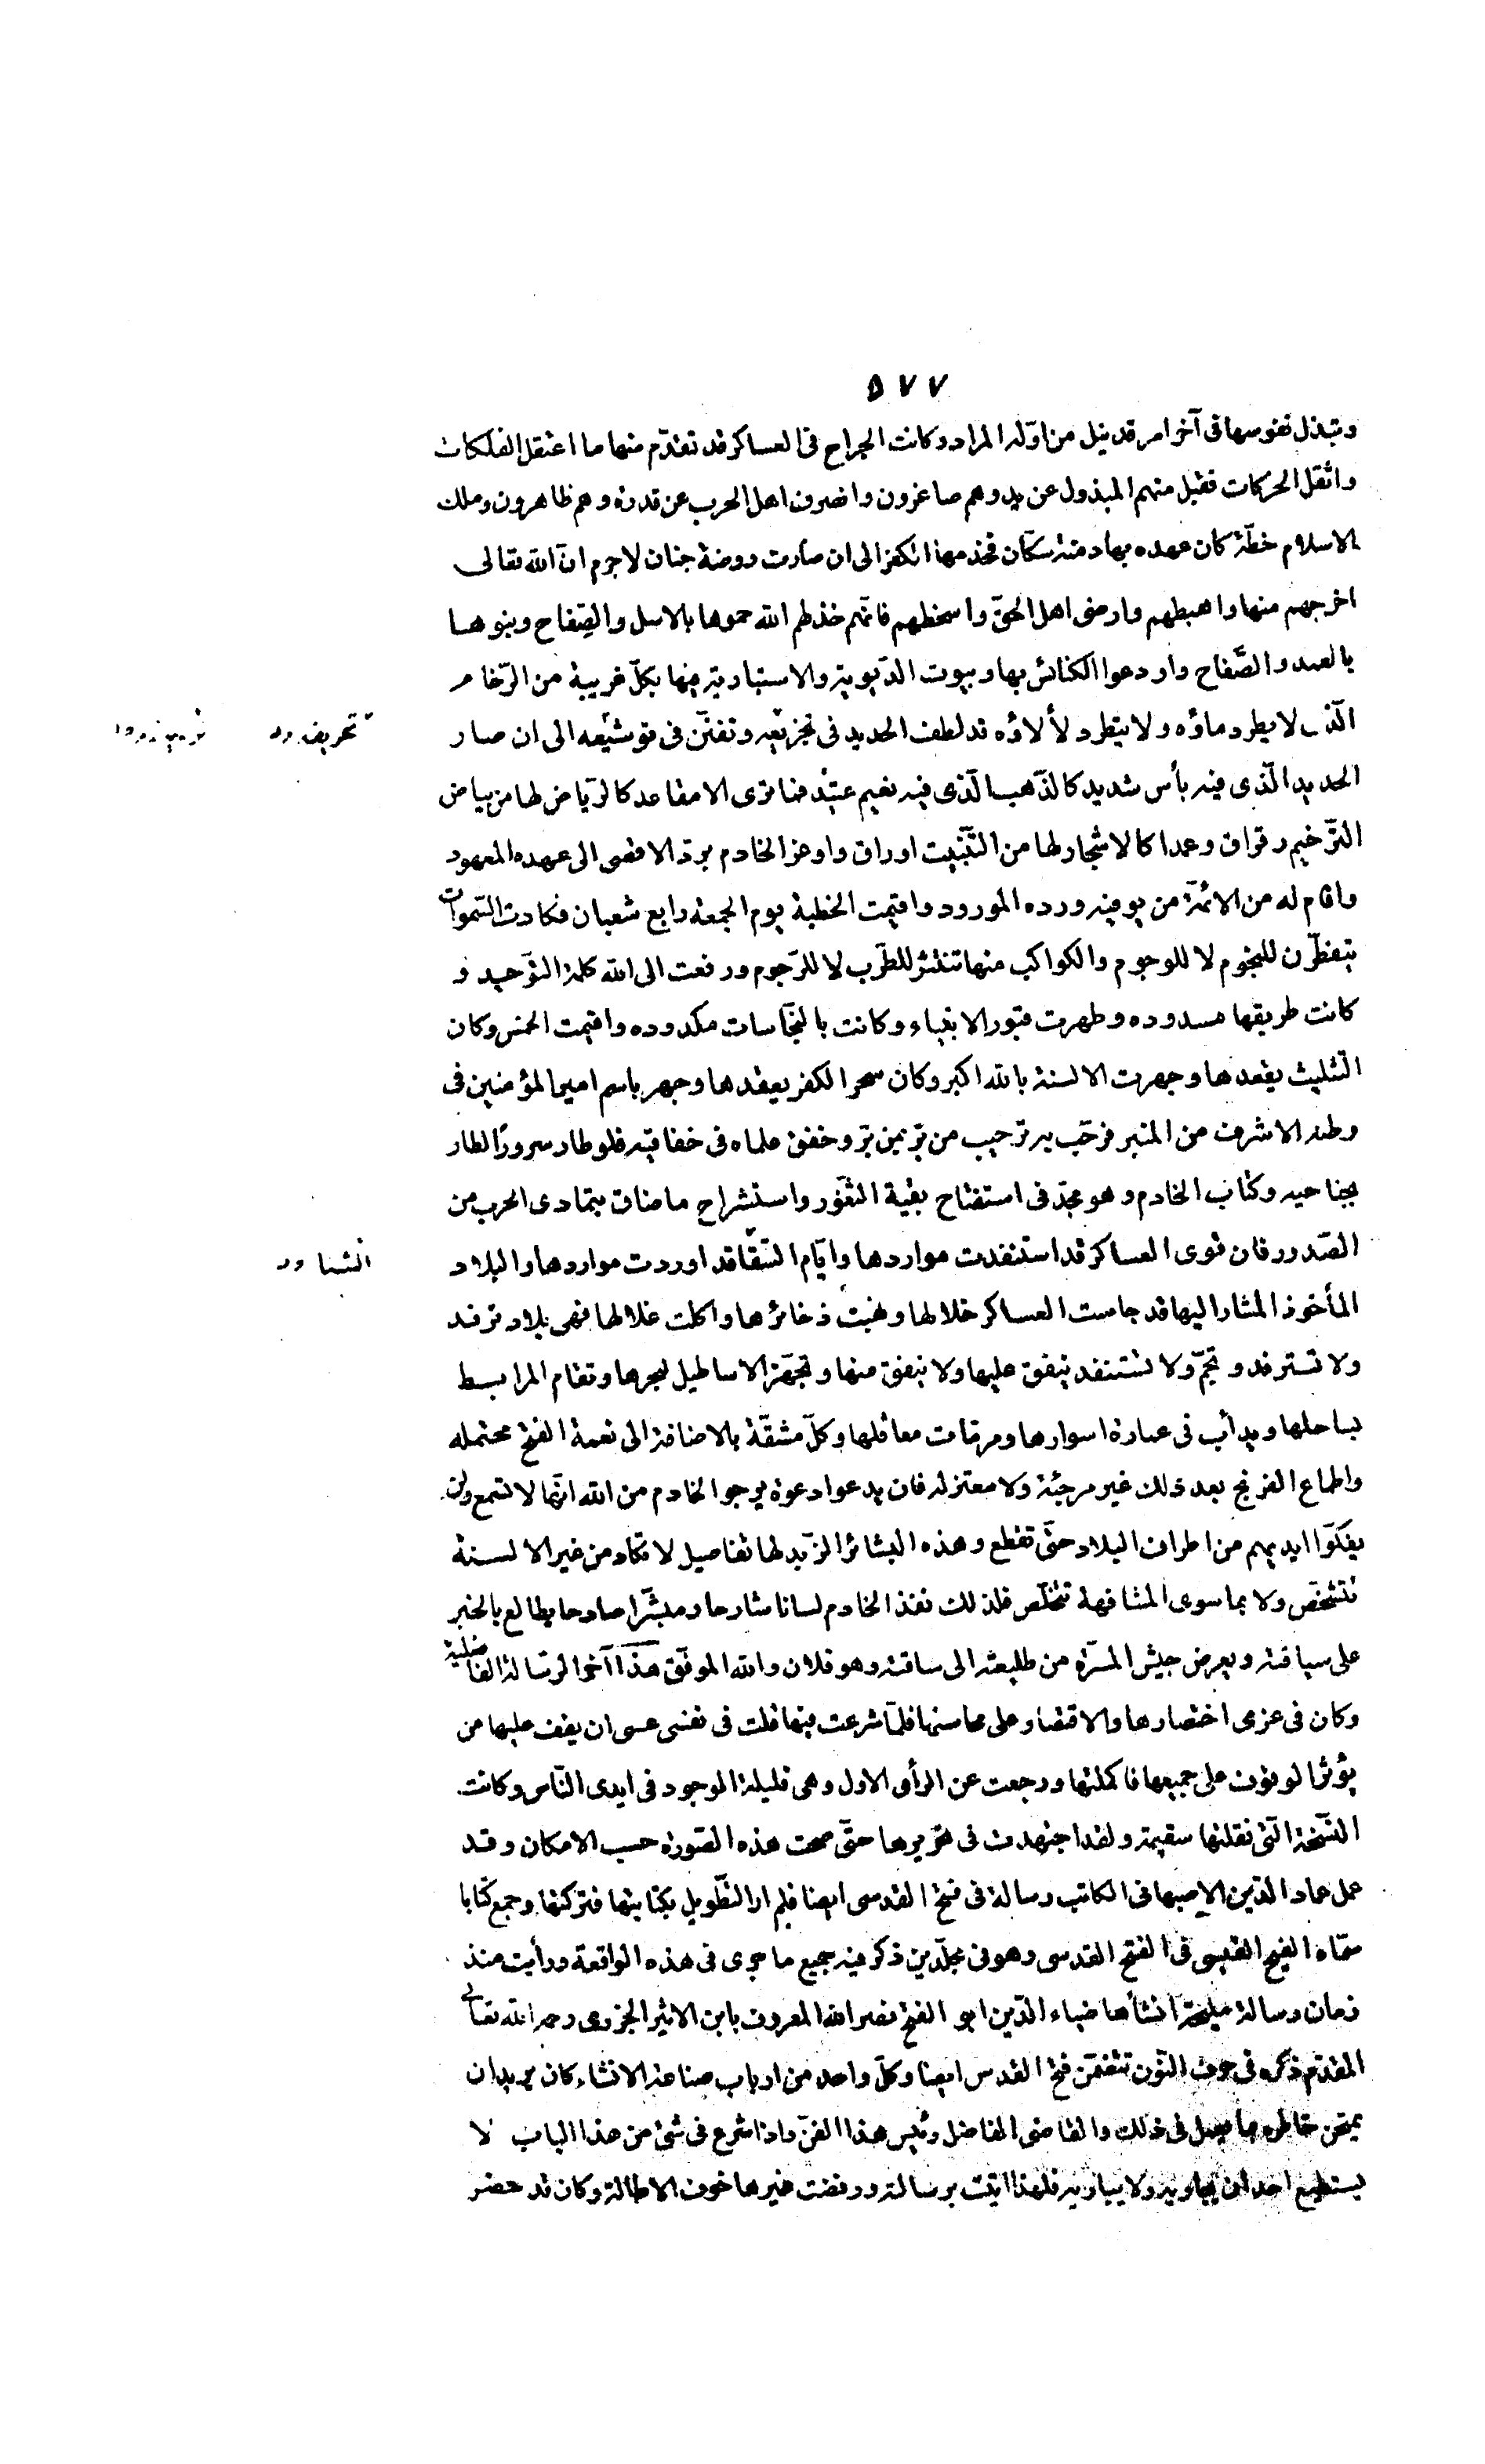 ٥٧٧
وتبذل نفوسها فى آخر امر قد نيل من اوّله المراد وكانت الجراح فى العساكر قد تقدّم منها ما اعتقل الفلكات
واثقل الحركات فقبل منهم المبذول عن يد وهم صاغرون وانصرف اهل الحرب عن قدرة وهم ظاهرون وملك
الاسلام خطّة كان عهده بها دمنة سكّان فخذمها الكفر الى ان صارت روضة جنان لا جرم انّ الله تعالى
اخرجهم منها واهبطهم وارضى اهل الحقّ واسخطهم فانّهم خذلهم الله حموها بالاسل والصِّفاح وبنوها
بالعمد والصَّفاح واودعوا الكنائس بها وبيوت الدّيوية والاستبارية منها بكلّ غريبة من الرّخام
الّذى لا يطرد ماؤه ولا ينطرد لألاؤه قد لطف الحديد فى تجزيعه وتفنّن فى توشيعه الى ان صار
تحريف در
الحديد الّذى فيه بأس شديد كالذّهب الّذى فيه نعيم عتيد فما ترى الا مقاعد كالرّياض لها من بياض
التّرخيم رقراق وعمدا كالاشجار لها من التّنبيت اوراق واوعز الخادم بردّ الاقصى الى عهده المعهود
واقام له من الائمّة من يوفيه ورده المورود واقيمت الخطبة يوم الجمعة رابع شعبان فكادت السّموات
يتفطّرن للنجوم لا للوجوم والكواكب منها تنتثر للطّرب لا للرّجوم ورفعت الى الله كلمة التّوحيد و
كانت طريقها مسدوده وطهرت قبور الانبياء وكانت بالنّجاسات مكدوده واقيمت الخمس وكان
التّثليث يقعدها وجهرت الالسنة بالله اكبر وكان سحر الكفر يعقدها وجهر باسم امير المؤمنين فى
وطنه الاشرف من المنبر فرحّب به ترحيب من برّ بمن برّ وخفق علماه فى خفاقيه فلو طار سرورًا لطار
بجناحيه وكتاب الخادم وهو مجدّ فى استفتاح بقية الثّغور واستشراح ما ضاق بتمادى الحرب من
الصّدور فان قوى العساكر قد استنفدت مواردها وايّام الشّقا قد اوردت مواردها والبلاد
الشتا در
المأخوذ المشار اليها قد جاست العساكر خلالها ونهبت ذخائرها واكلت غلالها فهى بلاد ترفد
ولا تسترفد وتجمّ ولا تستنفد ينفق عليها ولا ينفق منها وتجهّز الاساطيل لبحرها وتقام المرابط
بساحلها ويدأب فى عمارة اسوارها ومرمّات معاقلها وكلّ مشقّة بالاضافة الى نعمة الفتح محتمله
واطماع الفرنج بعد ذلك غير مرجئة ولا معتزلة فان يدعوا دعوة يرجو الخادم من الله انّها لا تسمع ولن
يفكّوا ايديهم من اطراف البلاد حتّى تقطع وهذه البشائر الزّبد لها تفاصيل لا تكاد من غير الالسنة
تتشخّص ولا بما سوى المشافهة تتخلّص فلذلك نفذ الخادم لسانا شارحا ومبشّرا صادحا يطالع بالخبر
على سياقته ويعرض جيش المسرّة من طليعته الى ساقته وهو فلان والله الموفّق هذا آخر الرّسالة الفاضلية
وكان فى عزمى اختصارها والاقتصار على محاسنها فلمّا شرعت فيها قلت فى نفسى عسى ان يقف عليها من
يؤثر الوقوف على جميعها فاكملتها ورجعت عن الرأى الاول وهى قليلة الوجود فى ايدى النّاس وكانت
النّسخة الّتى نقلتها سقيمة ولقد اجتهدت فى تحريرها حتّى صحت هذه الصّورة حسب الامكان وقد
عمل عماد الدّين الاصبهانى الكاتب رسالة فى فتح القدسى ايضا فلم ار التّطويل بكتابتها فتركتها وجمع كتابا
سمّاه الفيح القسى فى الفتح القدسى وهو فى مجلّدين ذكر فيه جميع ما جرى فى هذه الواقعة ورأيت منذ
زمان رسالة مليحة انشأها ضياء الدّين ابو الفتح نصر الله المعروف بابن الاثير الجزرى رحمه الله تعالى
المقدّم ذكره فى حرف النّون تتضمّن فتح القدس ايضا وكلّ واحد من ارباب صناعة الانشاء كان يريد ان
يمتحن خاطره بما يعمل فى ذلك والقاضى الفاضل رئيس هذا الفنّ واذا شرع فى شئ من هذا الباب لا
يستطيع احد ان يجاريه ولا يباريه فلهذا اتيت برسالته ورفضت غيرها خوف الاطالة وكان قد حضر